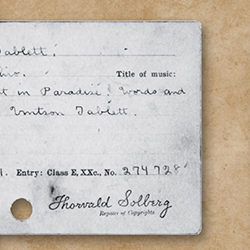 Tablett.
Title of music:
t in Paradise! Words and
Vintson Tablett.
Entry: Class E, XXc., No. 274728
Thorvald Solberg
Register of Copyrights.